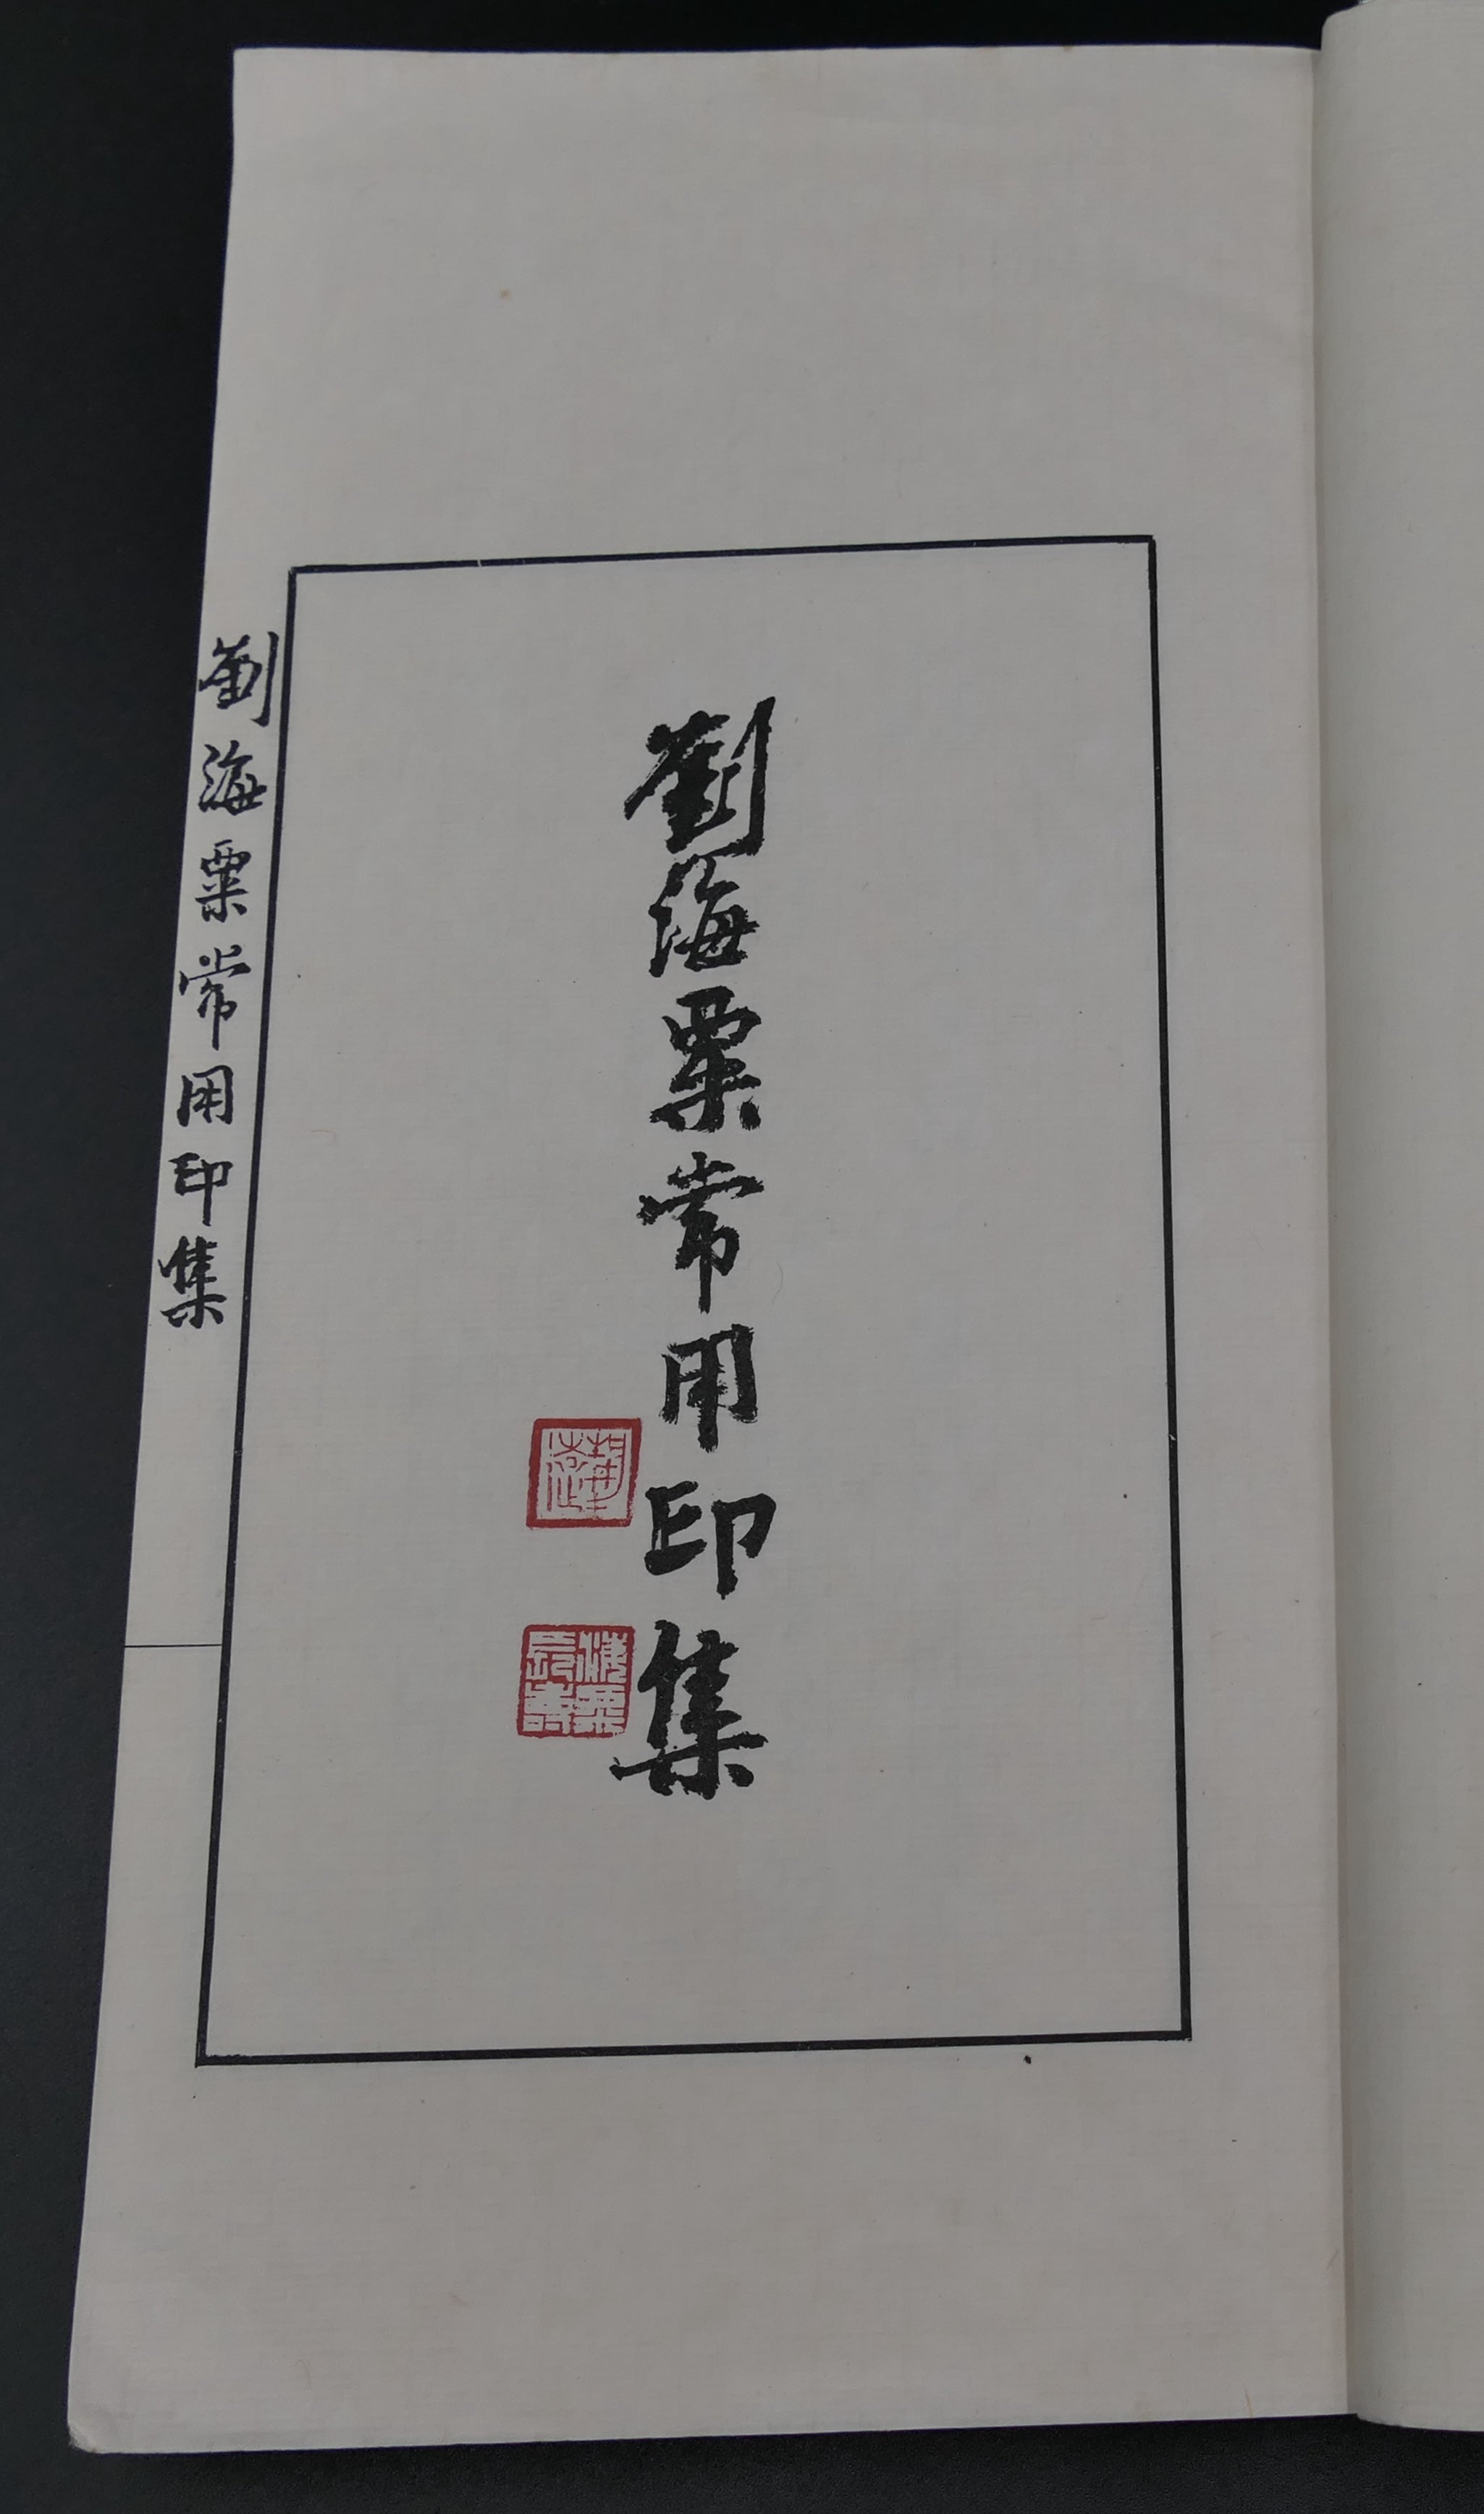 劉海粟常用印集
海粟長壽
劉海粟常用印集